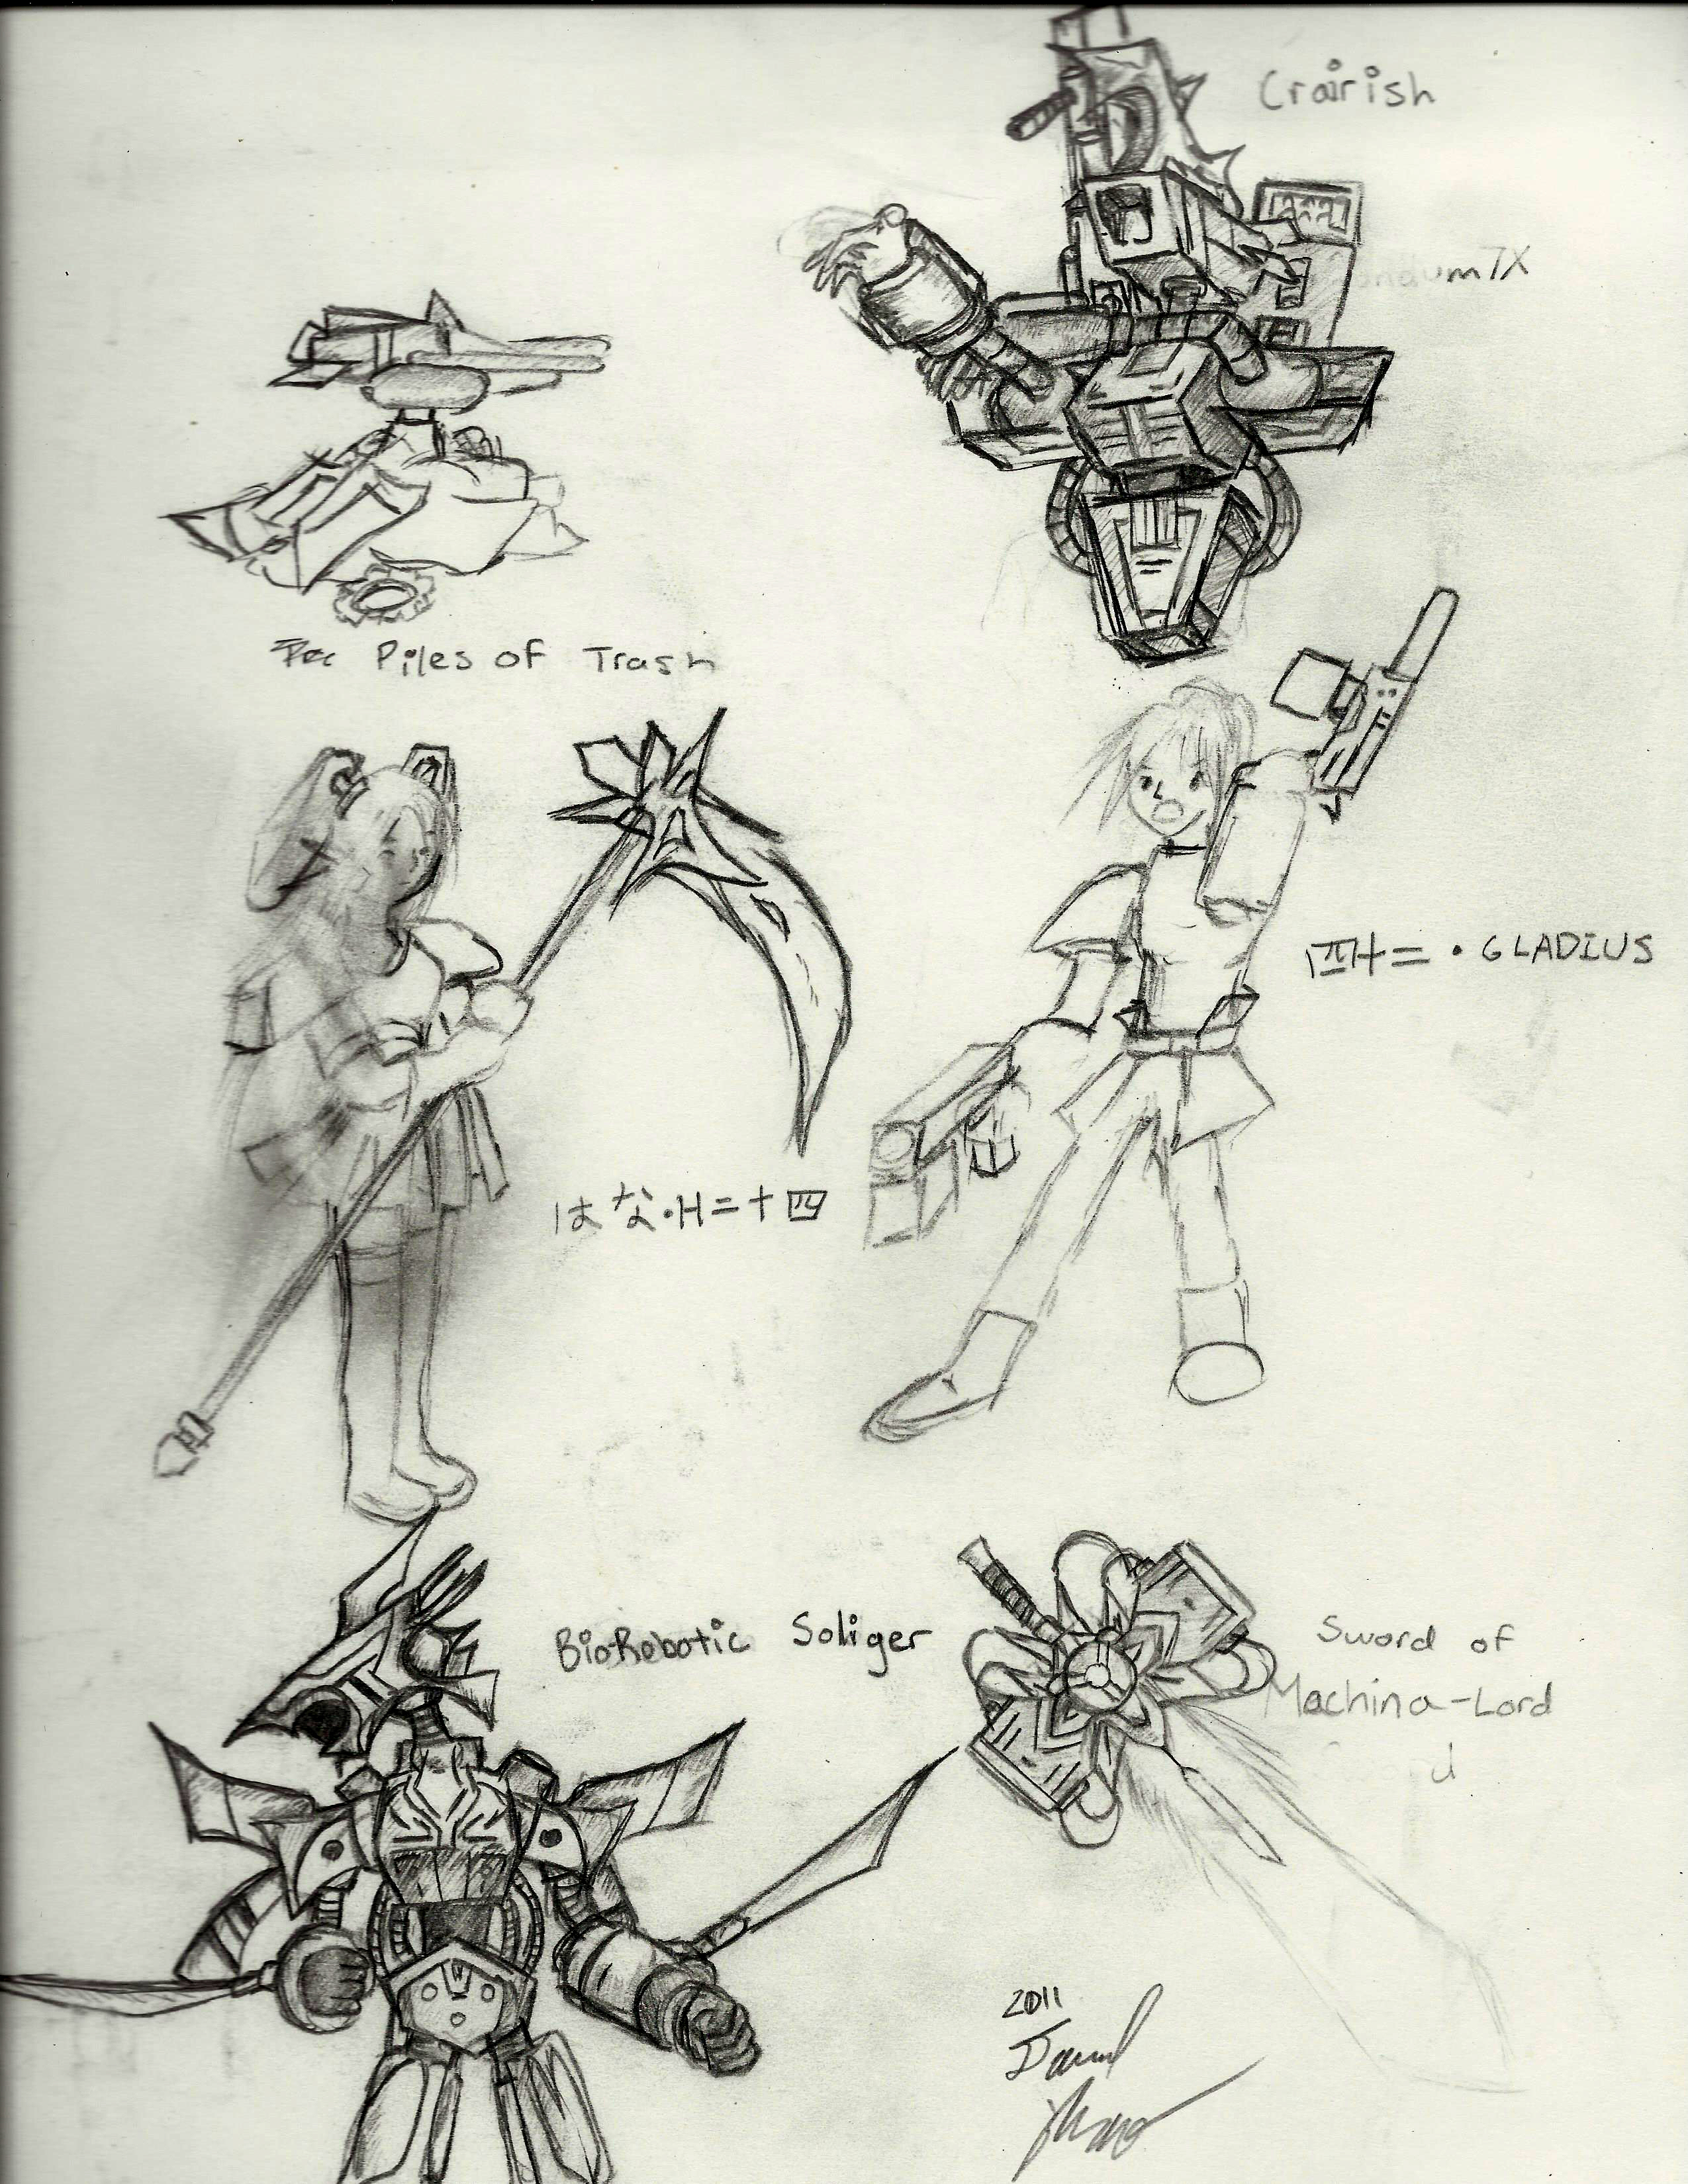 Crairish
Piles of Trash
四十二・GLADIUS
はな・H=十四
BioRobotic Soliger
Sword of
Machina-Lord
2011